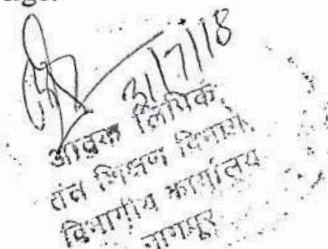 31/7/18
आवक लिपिक,
तंत्र शिक्षण विभाग,
विभागीय कार्यालय
नागपूर